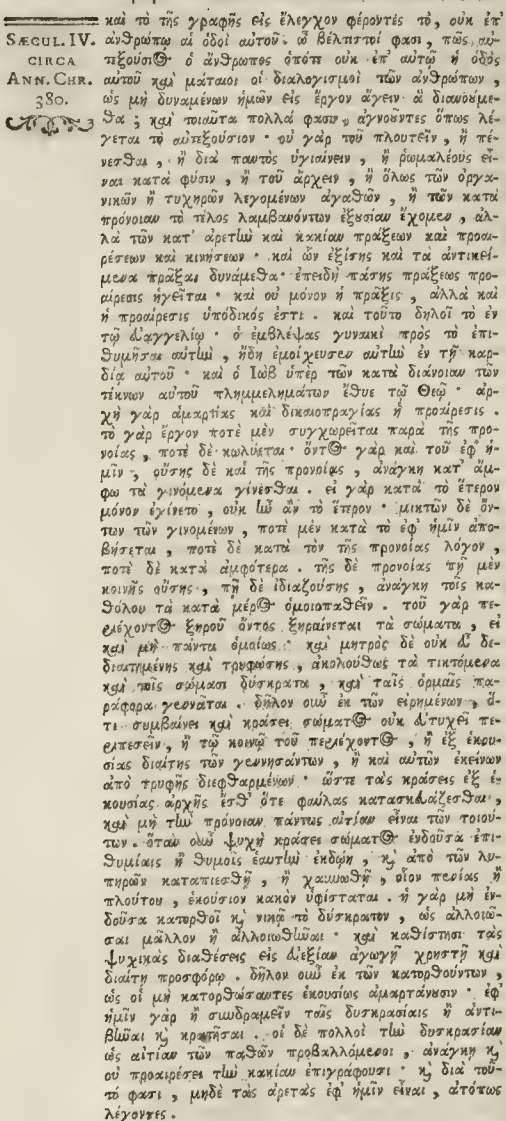 SÆCUL. IV.
CIRCA
ANN. CHR.
380.
καὶ τὸ τῆς γραφῆς εἰς ἔλεγχον φέροντές τὸ, οὐκ ἐπ'
ἀνθρώπῳ αἱ ὁδοὶ αὐτοῦ. ὦ βέλτιστοί φασι, πῶς αυ-
τιξούσιος ὁ ἄνθρωπος ὁπότε οὐκ ἐπ' αὐτῷ ἡ ὁδὸς
αὐτοῦ καὶ μάταιοι οἱ διαλογισμοὶ τῶν ἀνθρώπων,
ὡς μὴ δυναμένων ἡμῶν εἰς ἔργον ἄγειν ἃ διανούμε-
θα; καὶ τοιαῦτα πολλά φασιν, ἀγνοῦντες ὅπως λέ-
γεται τὸ αὐτεξούσιον· οὐ γὰρ τοῦ πλουτεῖν, ἢ πέ-
νεσθαι, ἢ διὰ παντὸς ὑγιαίνειν, ἢ ῥωμαλέους εἶ-
ναι κατὰ φύσιν, ἢ τοῦ ἄρχειν, ἢ ὅλως τῶν ὀργα-
νικῶν ἢ τυχηρῶν λεγομένων ἀγαθῶν, ἢ τῶν κατὰ
πρόνοιαν τὸ τέλος λαμβανόντων ἐξουσίαν ἔχομεν, ἀλ-
λὰ τῶν κατ' ἀρετὴν καὶ κακίαν πράξεων καὶ προαι-
ρέσεων καὶ κινήσεων· καὶ ὧν ἐξίσης καὶ τὰ ἀντικεί-
μενα πρᾶξαι δυνάμεθα· ἐπειδὴ πάσης πράξεως προ-
αίρεσις ἡγεῖται· καὶ οὐ μόνον ἡ πρᾶξις, ἀλλὰ καὶ
ἡ προαίρεσις ὑπόδικός ἐστι. καὶ τοῦτο δηλοῖ τὸ ἐν
τῷ εὐαγγελίῳ· ὁ ἐμβλέψας γυναικὶ πρὸς τὸ ἐπι-
θυμῆσαι αὐτὴν, ἤδη ἐμοίχευσεν αὐτὴν ἐν τῇ καρ-
δίᾳ αὐτοῦ· καὶ ὁ Ἰὼβ ὑπὲρ τῶν κατὰ διάνοιαν τῶν
τέκνων αὐτοῦ πλημμελημάτων ἔθυε τῷ Θεῷ· ἀρ-
χὴ γὰρ ἁμαρτίας καὶ δικαιοπραγίας ἡ προαίρεσις.
τὸ γὰρ ἔργον ποτὲ μὲν συγχωρεῖται παρὰ τῆς προ-
νοίας, ποτὲ δὲ κωλύεται· ὄντος γὰρ καὶ τοῦ ἐφ' ἡ-
μῖν, οὔσης δὲ καὶ τῆς προνοίας, ἀνάγκη κατ' ἄμ-
φω τὰ γινόμενα γίνεσθαι. εἰ γὰρ κατὰ τὸ ἕτερον
μόνον ἐγίνετο, οὐκ ἦν ἂν τὸ ἕτερον· μικτῶν δὲ ὄν-
των τῶν γινομένων, ποτὲ μὲν κατὰ τὸ ἐφ' ἡμῖν ἀπο-
βήσεται, ποτὲ δὲ κατὰ τὸν τῆς προνοίας λόγον,
ποτὲ δὲ κατὰ ἀμφότερα. τῆς δὲ προνοίας πῆ μὲν
κοινῆς οὔσης, πῆ δὲ ἰδιαζούσης, ἀνάγκη τοῖς κα-
θόλου τὰ κατὰ μέρος ὁμοιοπαθεῖν. τοῦ γὰρ πε-
ριέχοντος ξηροῦ ὄντος ξηραίνεται τὰ σώματα, εἰ
καὶ μὴ πάντα ὁμοίως· καὶ μητρὸς δὲ οὐκ εὖ δε-
διαιτημένης καὶ τρυφώσης, ἀκολούθως τὰ τικτόμενα
καὶ τοῖς σώμασι δύσκρατα, καὶ ταῖς ὁρμαῖς πα-
ράφορα γεννᾶται. δῆλον οὖν ἐκ τῶν εἰρημένων, ὅ-
τι συμβαίνει καὶ κράσει σώματος οὐκ εὐτυχεῖ πε-
ριπεσεῖν, ἢ τῷ κοινῷ τοῦ περιέχοντος, ἢ ἐξ ἑκου-
σίας διαίτης τῶν γεννησάντων, ἢ καὶ αὐτῶν ἐκείνων
ἀπὸ τρυφῆς διεφθαρμένων· ὥστε τὰς κράσεις ἐξ ἑ-
κουσίας ἀρχῆς ἔσθ' ὅτε φαύλας κατασκευάζεσθαι,
καὶ μὴ τὴν πρόνοιαν πάντως αἰτίαν εἶναι τῶν τοιού-
των. ὅταν οὖν ψυχὴ κράσει σώματος ἐνδοῦσα ἐπι-
θυμίαις ἢ θυμοῖς ἑαυτὴν ἐκδώῃ, καὶ ἀπὸ τῶν λυ-
πηρῶν καταπιεσθῇ, ἢ χαυνωθῇ, οἷον πενίας ἢ
πλούτου, ἑκούσιον κακὸν ὑφίσταται. ἡ γὰρ μὴ ἐν-
δοῦσα κατορθοῖ καὶ νικᾷ τὸ δύσκρατον, ὡς ἀλλοιῶ-
σαι μᾶλλον ἢ ἀλλοιωθῆναι· καὶ καθίστησι τὰς
ψυχικὰς διαθέσεις εἰς εὐεξίαν ἀγωγῇ χρηστῇ καὶ
διαίτῃ προσφόρῳ. δῆλον οὖν ἐκ τῶν κατορθούντων,
ὡς οἱ μὴ κατορθώσαντες ἑκουσίως ἁμαρτάνουσιν· ἐφ'
ἡμῖν γὰρ ἢ συνδραμεῖν ταῖς δυσκρασίαις ἢ ἀντι-
βῆναι καὶ κρατῆσαι. οἱ δὲ πολλοὶ τὴν δυσκρασίαν
ὡς αἰτίαν τῶν παθῶν προβαλλόμενοι, ἀνάγκῃ καὶ
οὐ προαιρέσει τὴν κακίαν ἐπιγράφουσι· καὶ διὰ τοῦ-
τό φασι, μηδὲ τὰς ἀρετὰς ἐφ' ἡμῖν εἶναι, ἀτόπως
λέγοντες.